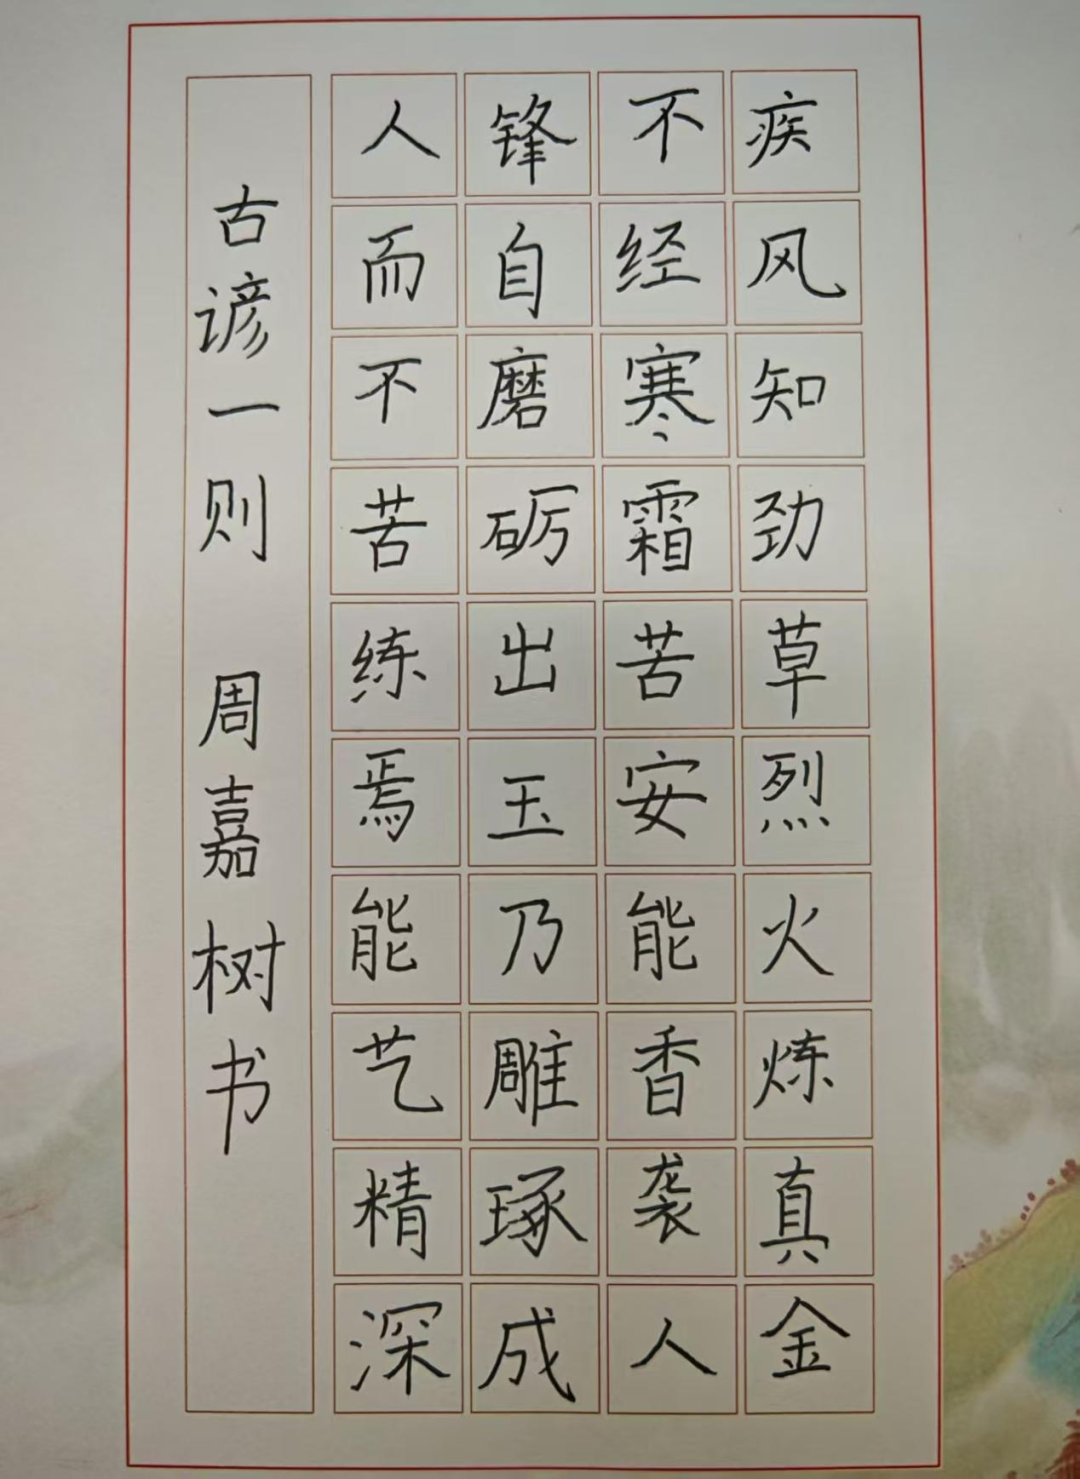 疾风知劲草烈火炼真金
不经寒霜苦安能香袭人
锋自磨砺出玉乃雕琢成
人而不苦练焉能艺精深
古谚一则 周嘉树书